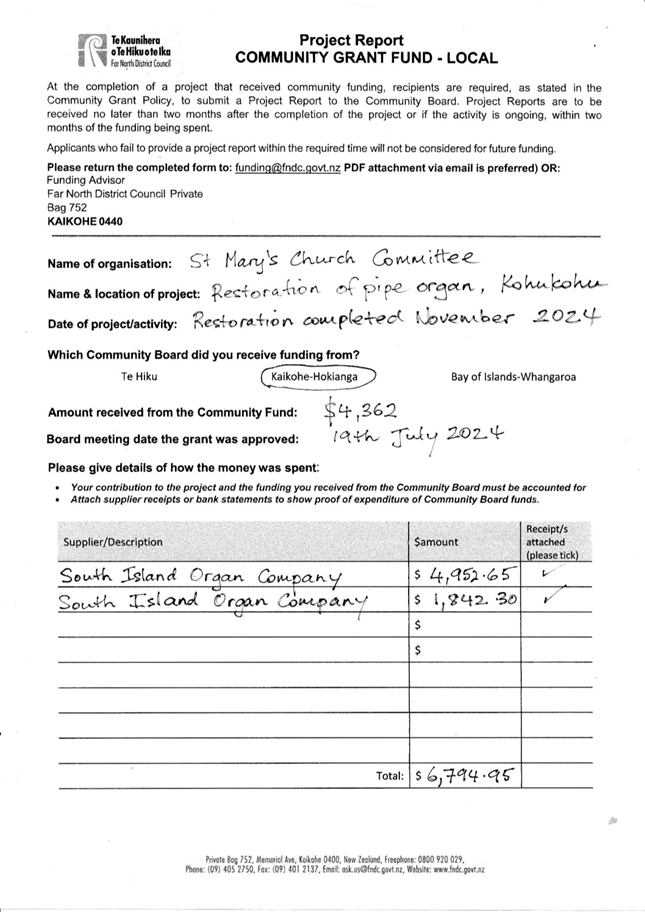 Te Kaunihera
o Te Hiku o te Ika
Far North District Council
Project Report
COMMUNITY GRANT FUND - LOCAL
At the completion of a project that received community funding, recipients are required, as stated in the
Community Grant Policy, to submit a Project Report to the Community Board. Project Reports are to be
received no later than two months after the completion of the project or if the activity is ongoing, within two
months of the funding being spent.
Applicants who fail to provide a project report within the required time will not be considered for future funding.
Please return the completed form to: funding@fndc.govt.nz PDF attachment via email is preferred) OR:
Funding Advisor
Far North District Council Private
Bag 752
KAIKOHE 0440
Name of organisation: St Mary's Church Committee
Name & location of project: Restoration of pipe organ, Kohukohu
Date of project/activity: Restoration completed November 2024
Which Community Board did you receive funding from?
Te Hiku Kaikohe-Hokianga Bay of Islands-Whangaroa
Amount received from the Community Fund: $4,362
Board meeting date the grant was approved: 19th July 2024
Please give details of how the money was spent:
• Your contribution to the project and the funding you received from the Community Board must be accounted for
• Attach supplier receipts or bank statements to show proof of expenditure of Community Board funds.
Supplier/Description $amount Receipt/s attached (please tick)
South Island Organ Company $ 4,952.65 ✓
South Island Organ Company $ 1,842.30 ✓
$
$
Total: $ 6,794.95
Private Bag 752, Memorial Ave, Kaikohe 0400, New Zealand, Freephone: 0800 920 029,
Phone: (09) 405 2750, Fax: (09) 401 2137, Email: ask.us@fndc.govt.nz, Website: www.fndc.govt.nz